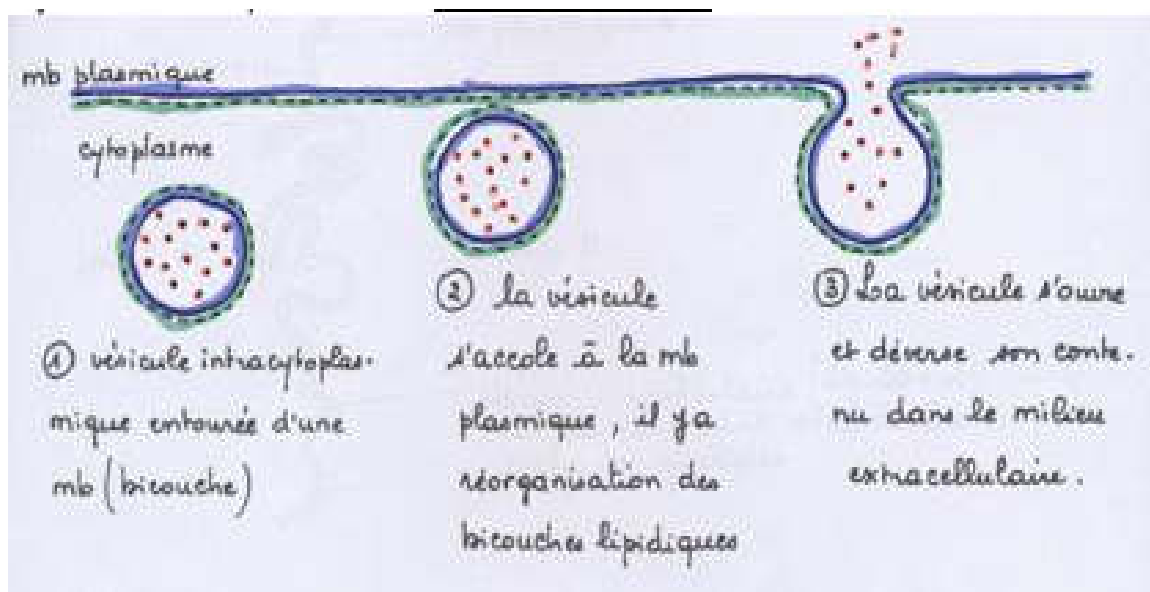 mb plasmique
cytoplasme
① vésicule intracytoplas-
mique entourée d'une
mb (bicouche)
② la vésicule
s'accole à la mb
plasmique, il y a
réorganisation des
bicouches lipidiques
③ La vésicule s'ouvre
et déverse son conte-
nu dans le milieu
extracellulaire.